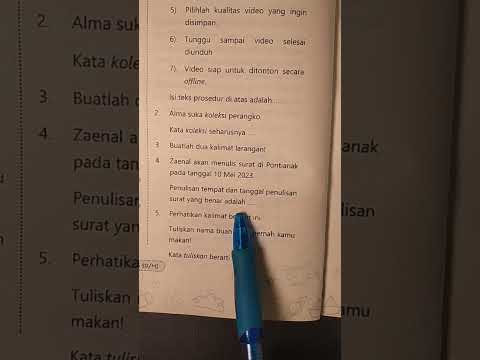 5) Pilihlah kualitas video yang ingin
disimpan.
6) Tunggu sampai video selesai
diunduh
7). Video siap untuk ditonton secara
offline.
Isi teks prosedur di atas adalah ....
2. Alma suka koleksi perangko.
Kata koleksi seharusnya ....
3. Buatlah dua kalimat larangan!
4. Zaenal akan menulis surat di Pontianak
pada tanggal 10 Mei 2023.
Penulisan tempat dan tanggal penulisan
surat yang benar adalah ....
5. Perhatikan kalimat ini
Tuliskan nama kamu
makan!
Kata tuliskan
2. Alma suk
Kata kole
3. Buatlah d
4. Zaenal ak
pada tang
Penulisan
surat yang
5. Perhatika
Tuliskan n
makan!
Kata tulis
amu